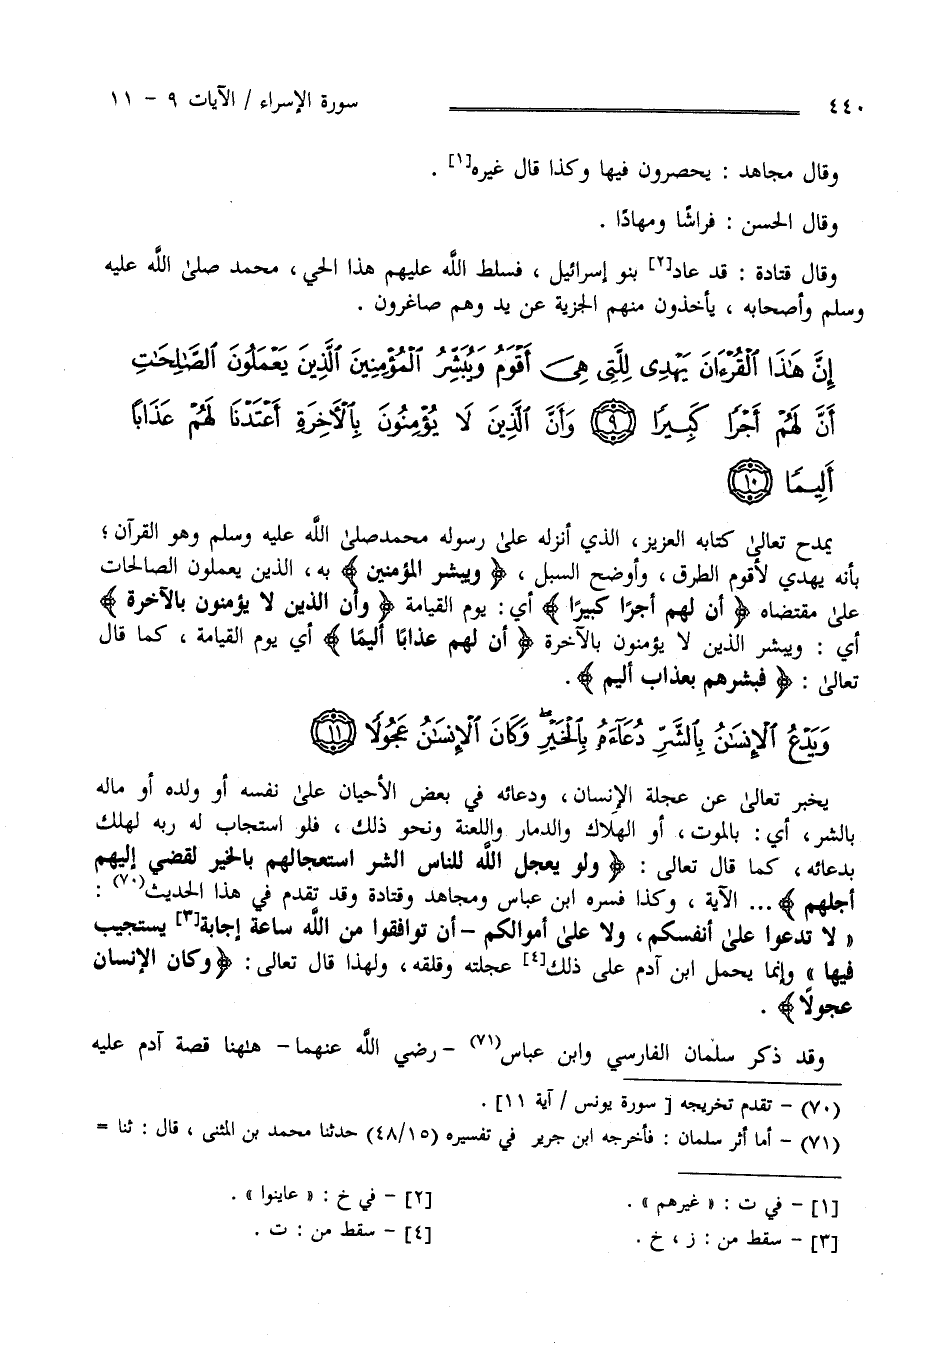 ٤٤٠ سورة الإسراء / الآيات ٩ - ١١
وقال مجاهد : يحصرون فيها وكذا قال غيره[١] .
وقال الحسن : فراشًا ومهادًا .
وقال قتادة : قد عاد[٢] بنو إسرائيل ، فسلط اللَّه عليهم هذا الحي ، محمد صلىٰ اللَّه عليه
وسلم وأصحابه ، يأخذون منهم الجزية عن يد وهم صاغرون .
إِنَّ هَٰذَا ٱلْقُرْءَانَ يَهْدِى لِلَّتِى هِىَ أَقْوَمُ وَيُبَشِّرُ ٱلْمُؤْمِنِينَ ٱلَّذِينَ يَعْمَلُونَ ٱلصَّٰلِحَٰتِ
أَنَّ لَهُمْ أَجْرًا كَبِيرًا ٩ وَأَنَّ ٱلَّذِينَ لَا يُؤْمِنُونَ بِٱلْأَخِرَةِ أَعْتَدْنَا لَهُمْ عَذَابًا
أَلِيمًا ١٠
يمدح تعالىٰ كتابه العزيز ، الذي أنزله علىٰ رسوله محمدصلىٰ اللَّه عليه وسلم وهو القرآن ؛
بأنه يهدي لأقوم الطرق ، وأوضح السبل ، ﴿ ويبشر المؤمنين ﴾ به ، الذين يعملون الصالحات
علىٰ مقتضاه ﴿ أن لهم أجرًا كبيرًا ﴾ أي : يوم القيامة ﴿ وأن الذين لا يؤمنون بالآخرة ﴾
أي : ويبشر الذين لا يؤمنون بالآخرة ﴿ أن لهم عذابًا أليمًا ﴾ أي يوم القيامة ، كما قال
تعالىٰ : ﴿ فبشرهم بعذاب أليم ﴾ .
وَيَدْعُ ٱلْإِنسَٰنُ بِٱلشَّرِّ دُعَآءَهُۥ بِٱلْخَيْرِ ۖ وَكَانَ ٱلْإِنسَٰنُ عَجُولًا ١١
يخبر تعالىٰ عن عجلة الإنسان ، ودعائه في بعض الأحيان علىٰ نفسه أو ولده أو ماله
بالشر ، أي : بالموت ، أو الهلاك والدمار واللعنة ونحو ذلك ، فلو استجاب له ربه لهلك
بدعائه ، كما قال تعالى : ﴿ ولو يعجل اللَّه للناس الشر استعجالهم بالخير لقضي إليهم
أجلهم ﴾ ... الآية ، وكذا فسره ابن عباس ومجاهد وقتادة وقد تقدم في هذا الحديث(٧٠) :
« لا تدعوا علىٰ أنفسكم ، ولا علىٰ أموالكم - أن توافقوا من اللَّه ساعة إجابة[٣] يستجيب
فيها » وإنما يحمل ابن آدم على ذلك[٤] عجلته وقلقه ، ولهذا قال تعالى : ﴿ وكان الإنسان
عجولًا ﴾ .
وقد ذكر سلمان الفارسي وابن عباس(٧١) - رضي اللَّه عنهما - هٰهنا قصة آدم عليه
(٧٠) - تقدم تخريجه [ سورة يونس / آية ١١] .
(٧١) - أما أثر سلمان : فأخرجه ابن جرير في تفسيره (٤٨/١٥) حدثنا محمد بن المثنى ، قال : ثنا =
[١] - في ت : « غيرهم » . [٢] - في خ : « عاينوا » .
[٣] - سقط من : ز ، خ . [٤] - سقط من : ت .